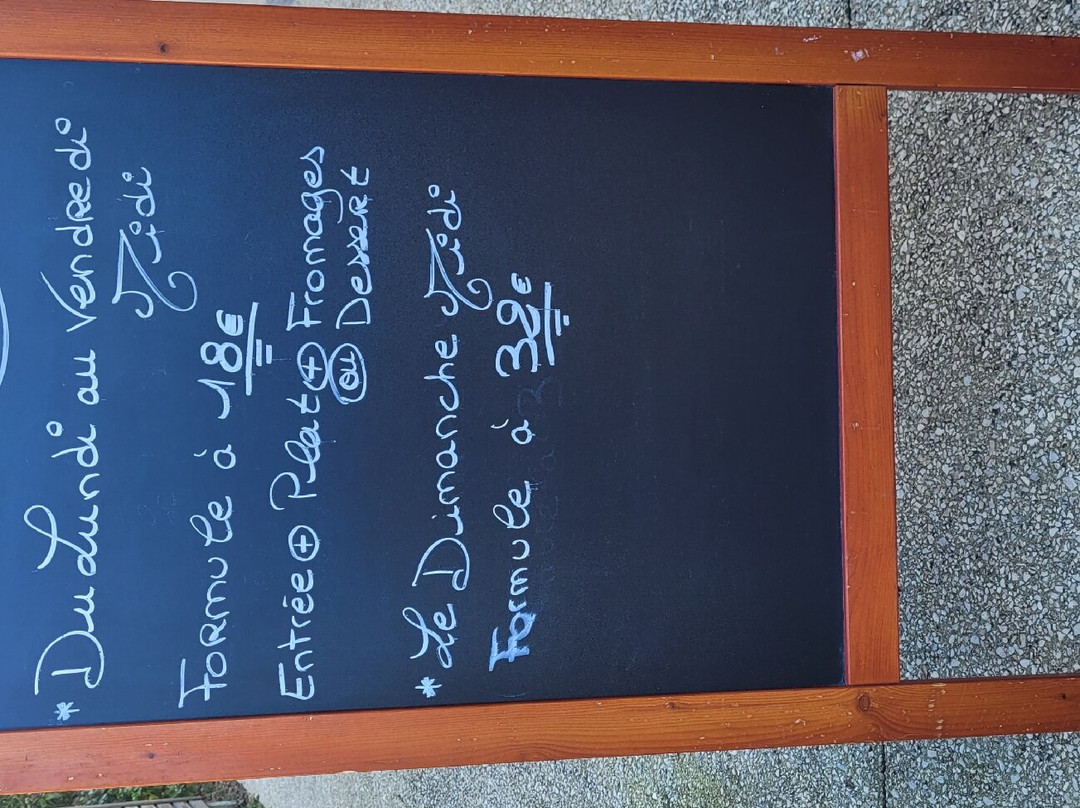 * Du Lundi au Vendredi
Midi
Formule à 18€
Entrée + Plat + Fromages
ou Dessert
* Le Dimanche Midi
Formule à 32€